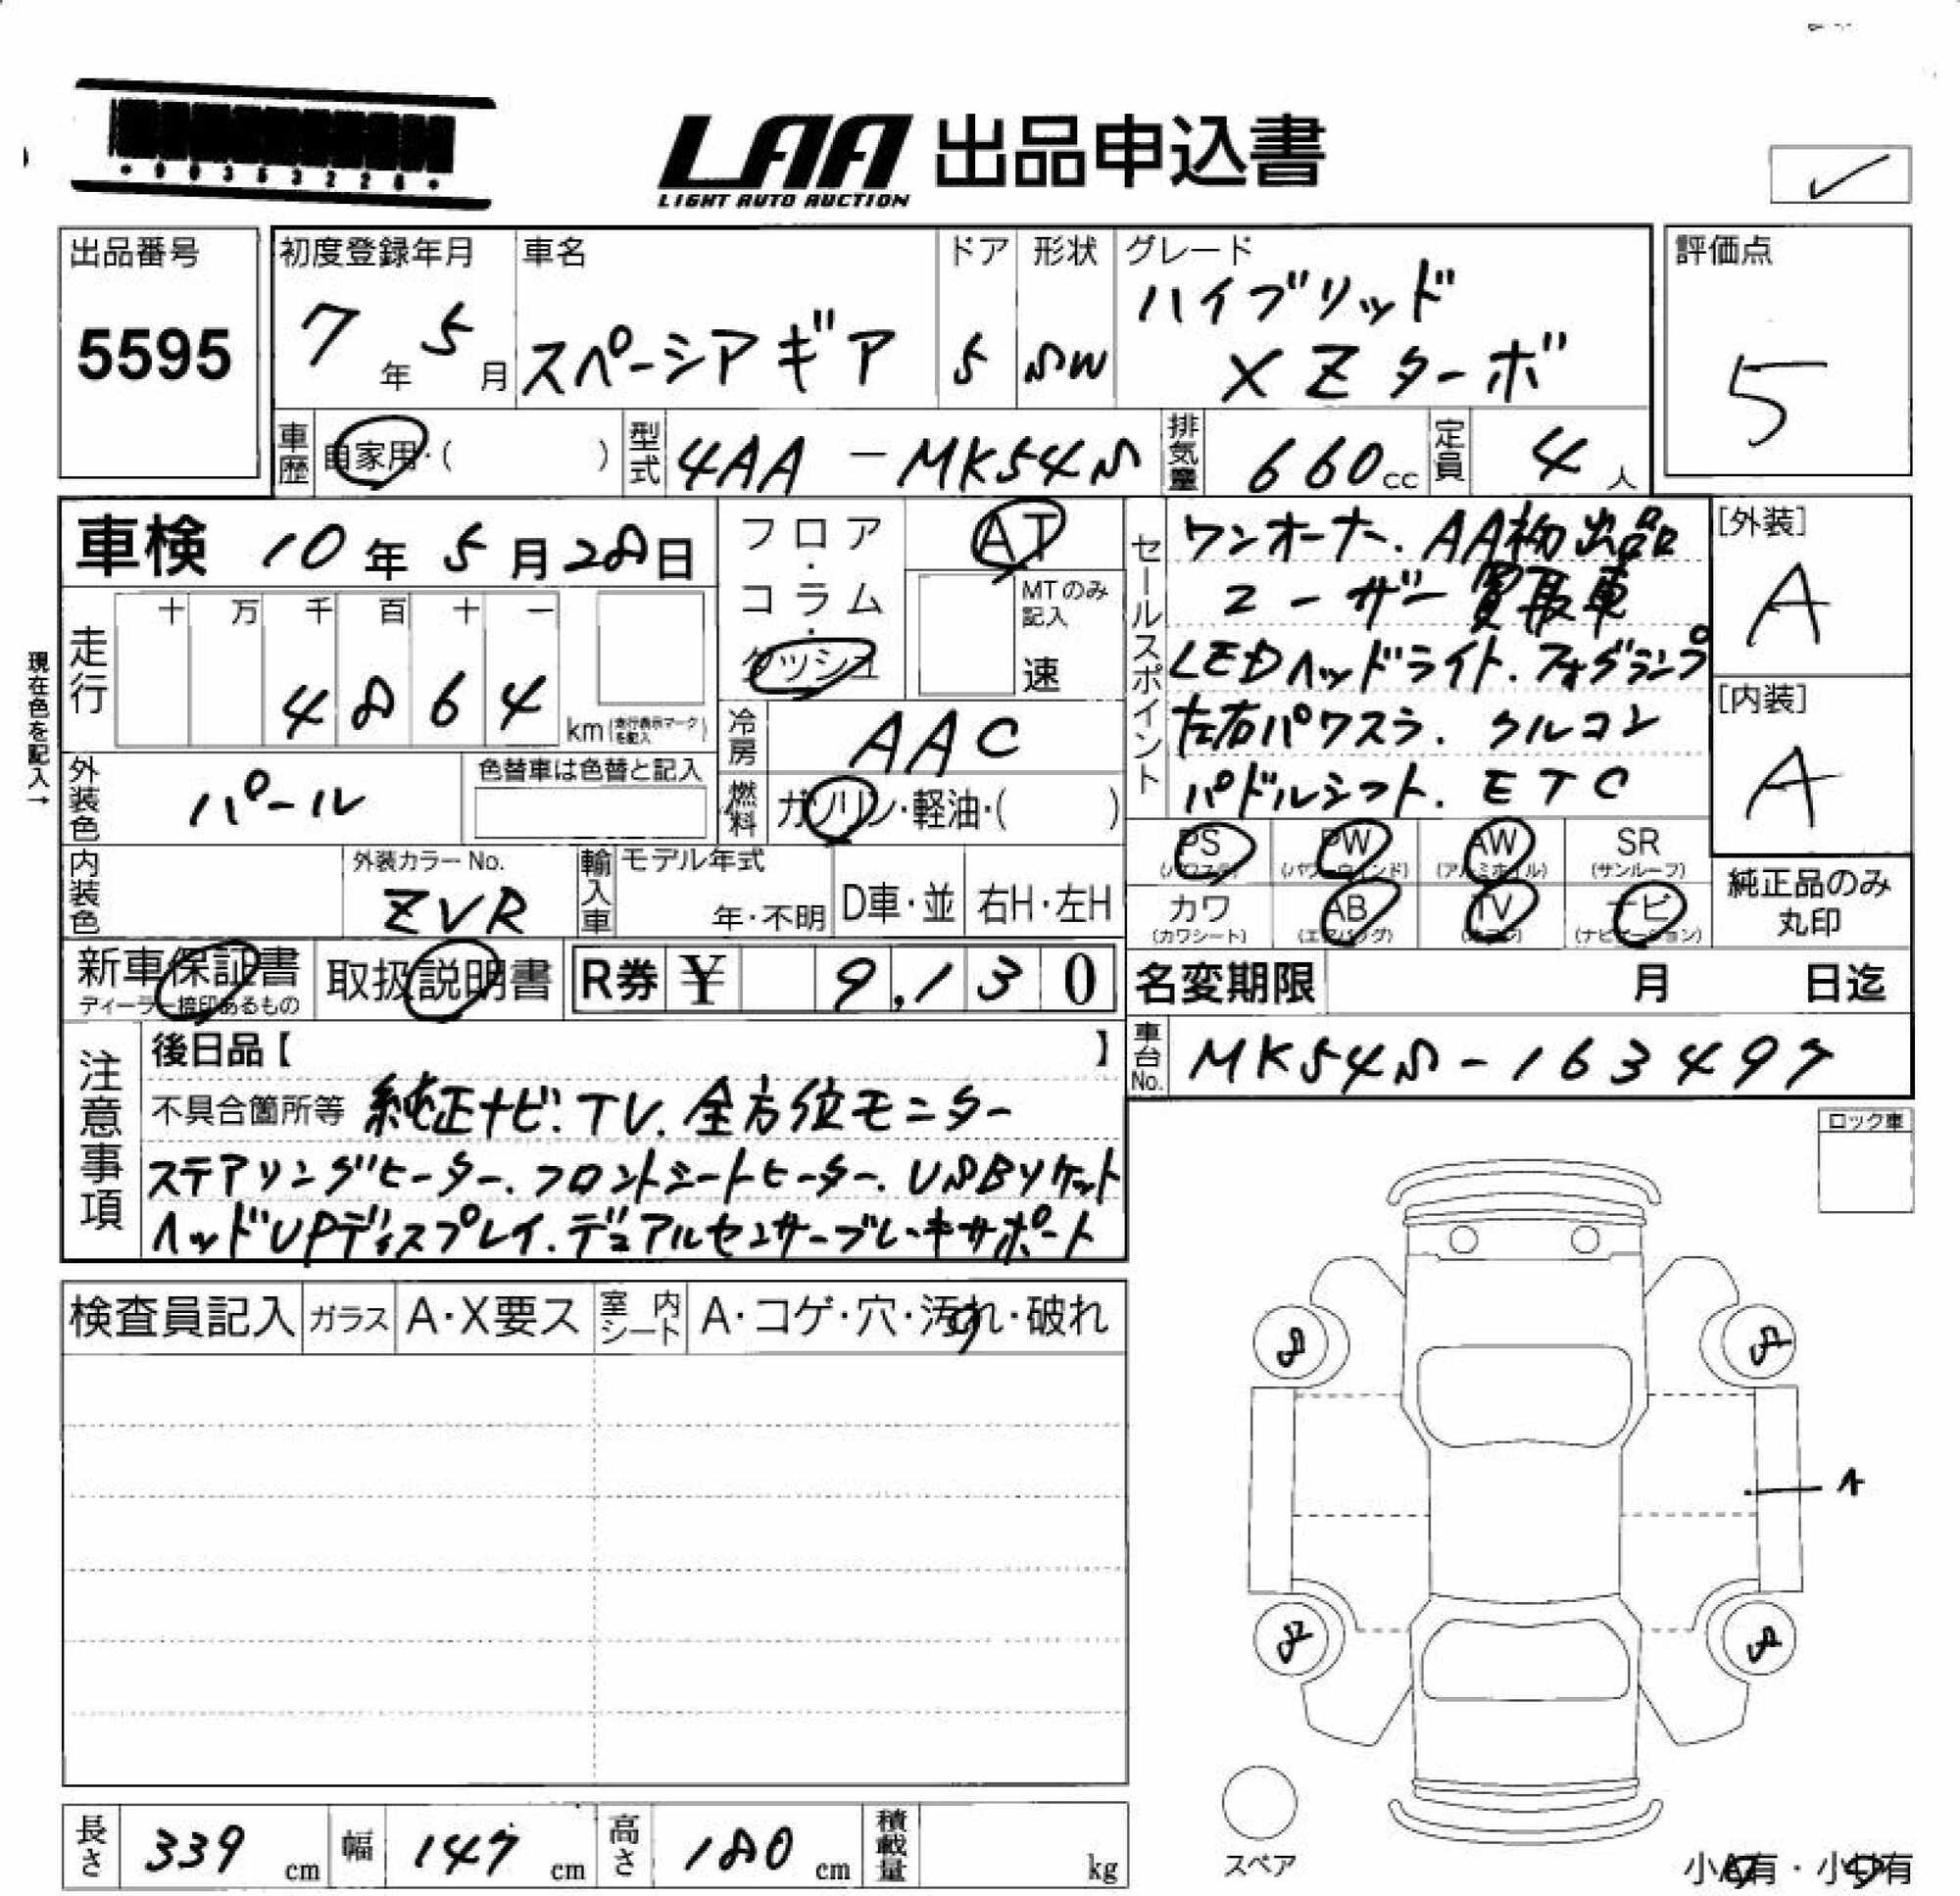 LAA 出品申込書
LIGHT AUTO AUCTION
出品番号
5595
初度登録年月
7年 5月
車名
スペーシアギア
ドア
5
形状
SW
グレード
ハイブリッド
XZターボ
評価点
5
車歴 自家用・( )
型式 4AA-MK54S
排気量 660cc
定員 4人
車検 10年 5月 28日
フロア・コラム・ダッシュ
AT
MTのみ記入
速
現在色を記入→
走行 十 万 千 百 十 一
4864 km(走行表示マークを記入)
冷房 AAC
外装色 パール
色替車は色替と記入
燃料 ガソリン・軽油・( )
内装色
外装カラーNo.
ZVR
輸入車 モデル年式
年・不明
D車・並
右H・左H
セールスポイント
ワンオーナー.AA初出品
ユーザー買取車
LEDヘッドライト.フォグランプ
左右パワスラ.クルコン
パドルシフト.ETC
[外装]
A
[内装]
A
PS (パワステ)
PW (パワーウィンド)
AW (アルミホイル)
SR (サンルーフ)
カワ (カワシート)
AB (エアバッグ)
TV
ナビ (ナビゲーション)
純正品のみ
丸印
新車保証書
ディーラー捺印あるもの
取扱説明書
R券 ¥ 9,130
名変期限 月 日迄
車台No. MK54S-163497
注意事項
後日品【 】
不具合箇所等 純正ナビ.TV.全方位モニター
ステアリングヒーター.フロントシートヒーター.USBソケット
ヘッドUPディスプレイ.デュアルセンサーブレーキサポート
ロック車
検査員記入
ガラス
A・X要ス
室内シート
A・コゲ・穴・汚れ・破れ
8
8
A
8
8
スペア
長さ 339 cm
幅 147 cm
高さ 180 cm
積載量 kg